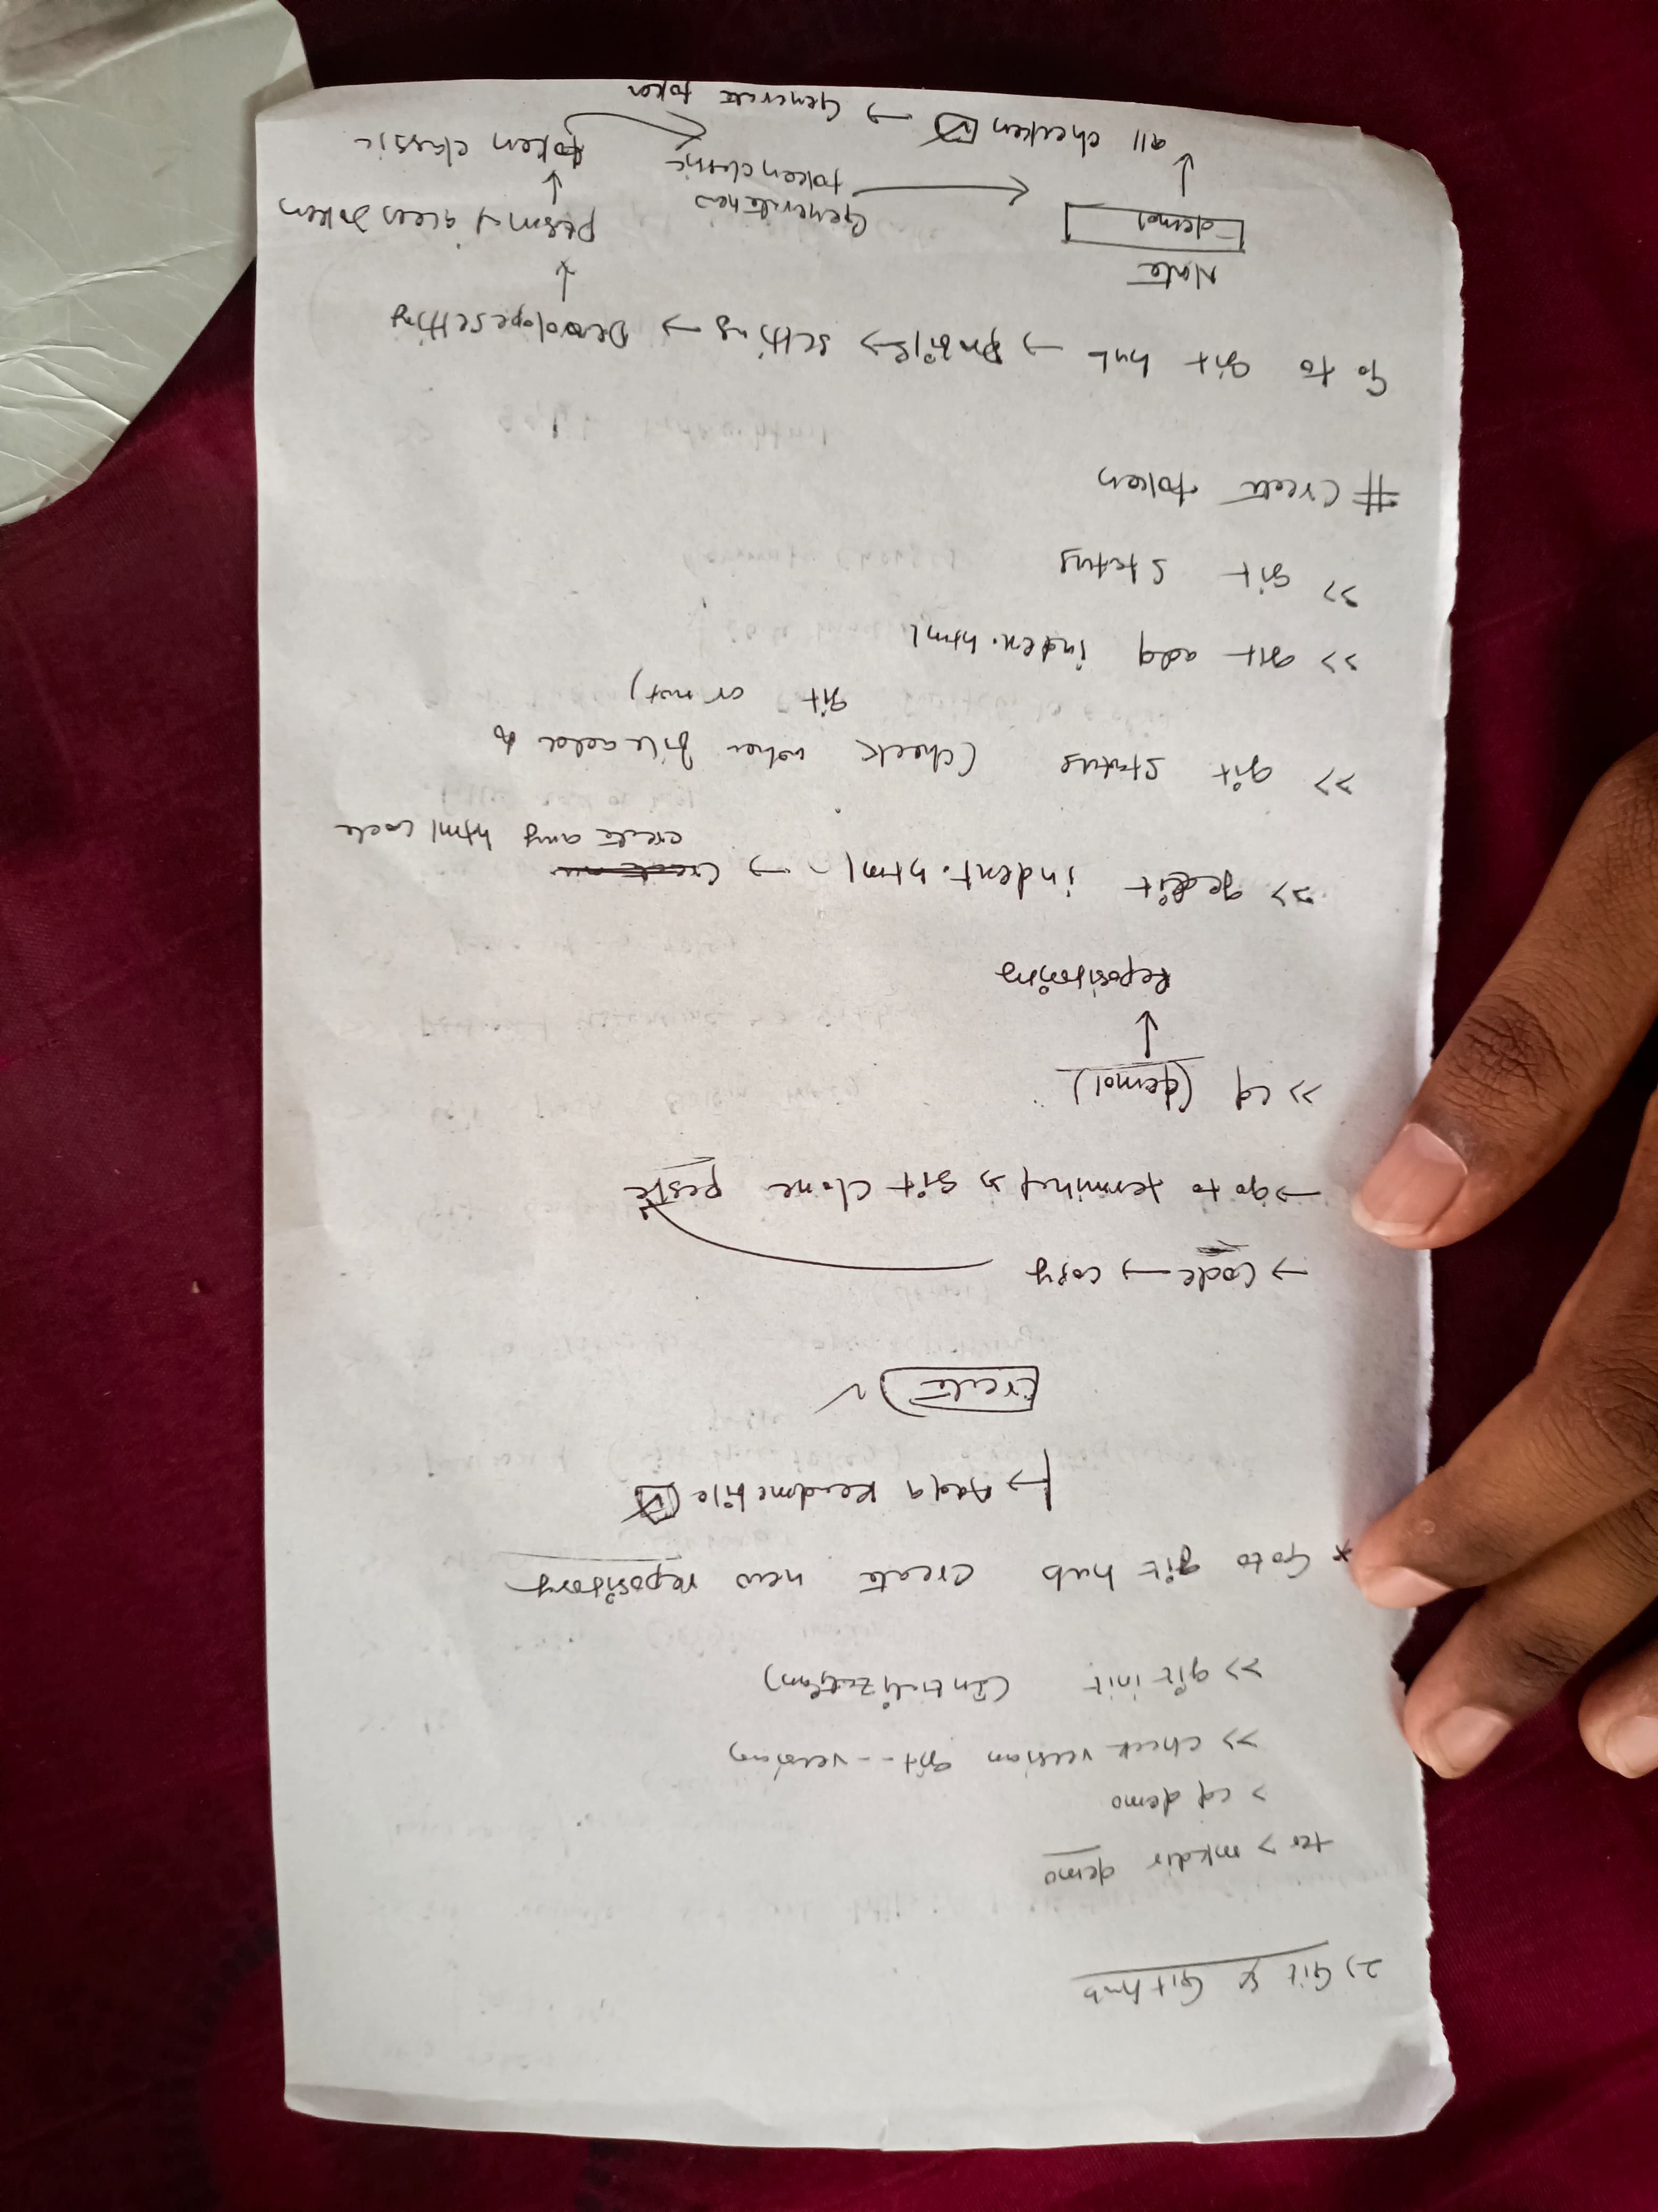 2) Git & Github
ter > mkdir demo
> cd demo
>> check version git --version
>> git init (Intialization)
* Goto git hub create new repository
→ Add a Readme file ☑
Create ✓
→ Code → copy
→ go to terminal >> git clone paste
>> cd (demo1)
↓
Repositoriry
>> gedit indext.html → create any html code
>> git status (check when file add to
git or not)
>> git add index.html
>> git status
# Create token
Go to git hub → profile → setting → Devolope setting
↓
Personal acces token
↓
token classic
Generate new
token classic
Note
demo1
↓
all checken ☑ → Generate token